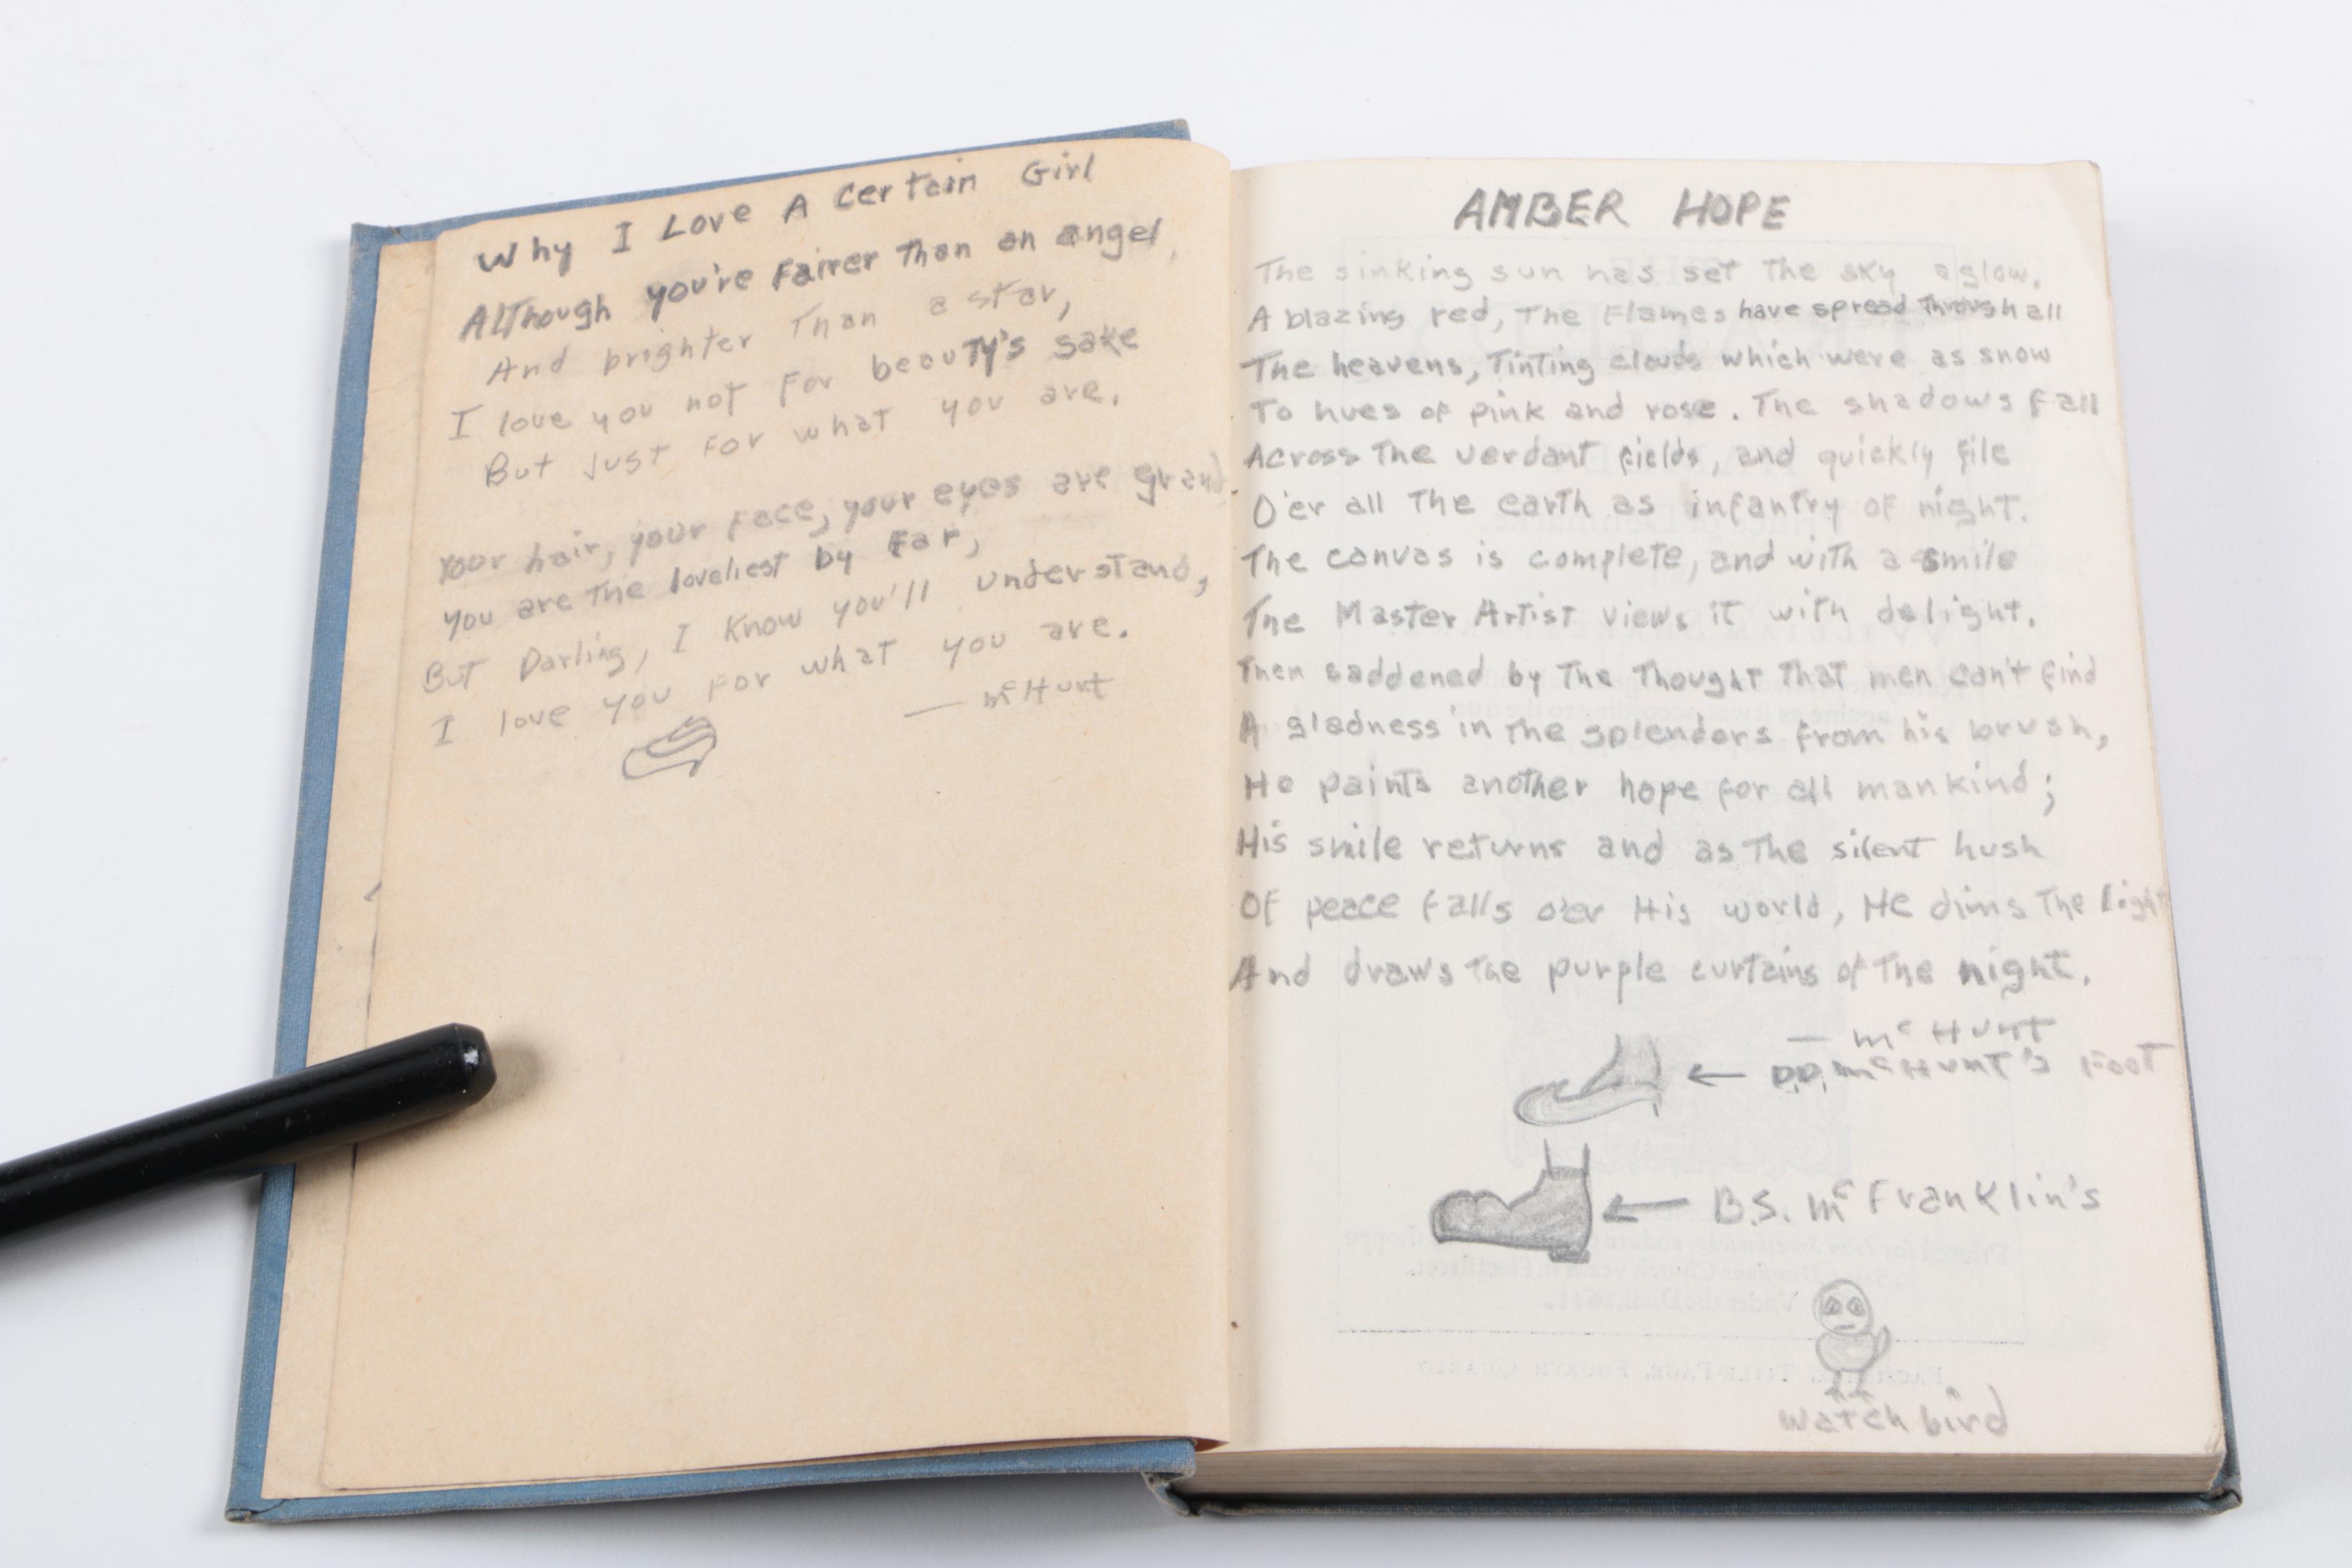 Why I Love A Certain Girl
Although you're Fairer Than an angel,
And brighter Than a star,
I love you not For beauty's sake
But Just For what you are.
Your hair, your Face, your eyes are grand,
you are The loveliest by Far,
But Darling, I Know you'll understand,
I love you For what you are.
— McHunt
AMBER HOPE
The sinking sun has set The sky aglow.
A blazing red, The Flames have spread Through all
The heavens, Tinting clouds which were as snow
To hues of pink and rose. The shadows Fall
Across The verdant fields, and quickly file
O'er all The earth as infantry of night.
The canvas is complete, and with a smile
The Master Artist views it with delight.
Then saddened by The Thought That men can't find
A gladness in The splendors from his brush,
He paints another hope for all mankind;
His smile returns and as The silent hush
Of peace falls o'er His world, He dims The Light
And draws The purple curtains of The night.
— McHunt
← D.D. McHunt's Foot
← B.S. McFranklin's
Watch bird